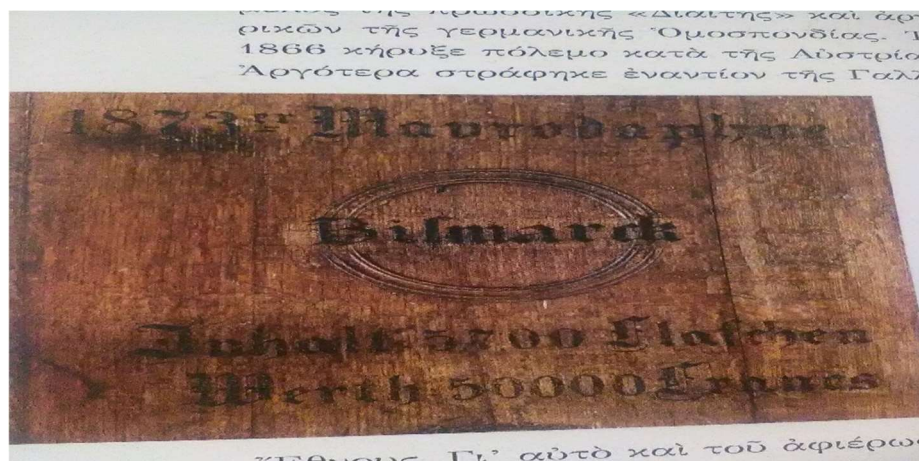 τῆς πρωσσικῆς «Διαίτης» καὶ
ρικῶν τῆς γερμανικῆς Ὁμοσπονδίας.
1866 κήρυξε πόλεμο κατὰ τῆς Αὐστρία
Ἀργότερα στράφηκε ἐναντίον τῆς Γαλ
1873er Mavrodaphne
Biſmarck
Inhalt 5700 Flaſchen
Werth 50000 Francs
Ἔθνους. Γι' αὐτὸ καὶ τοῦ ἀφιέρω